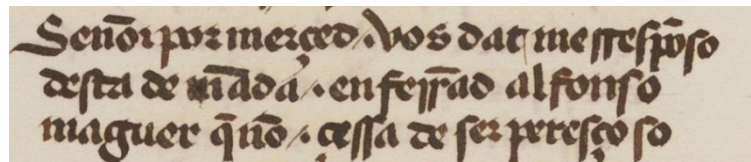 Señor por merçed · vos dat me rresp̄oso
desta demãda · en ferrãd alfonso
maguer q̃ nõ · çessa de ser peresçoso